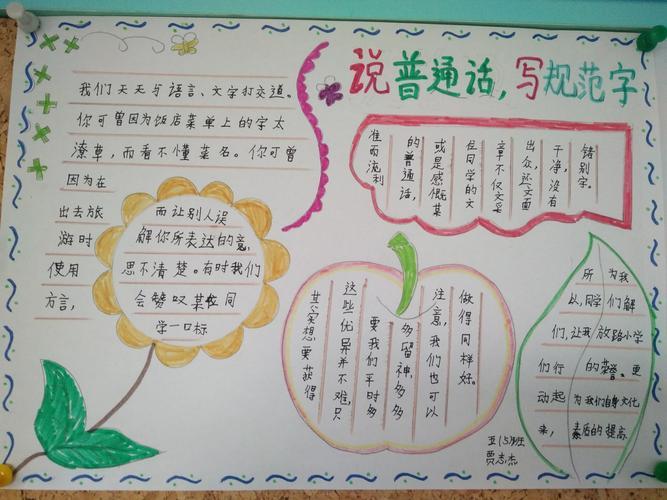 说普通话,写规范字
我们天天与语言、文字打交道。
你可曾因为饭店菜单上的字太
潦草,而看不懂菜名。你可曾
因为在
出去旅
游时
使用
方言,
而让别人误
解你所表达的意
思不清楚。有时我们
会赞叹某位同
学一口标
准而流利
的普通话,
或是感慨某
位同学的文
章不仅文采
出众,还文面
干净,没有
错别字。
其实想要获得
这些优异并不难,只
要我们平时多
多留神,多多
注意,我们也可以
做得同样好。
所
以,同学
们,让我
们行
动起
来,
为我
们解
放路小学
的荣誉、更
为我们自身文化
的提高
五(5)班
贾志杰